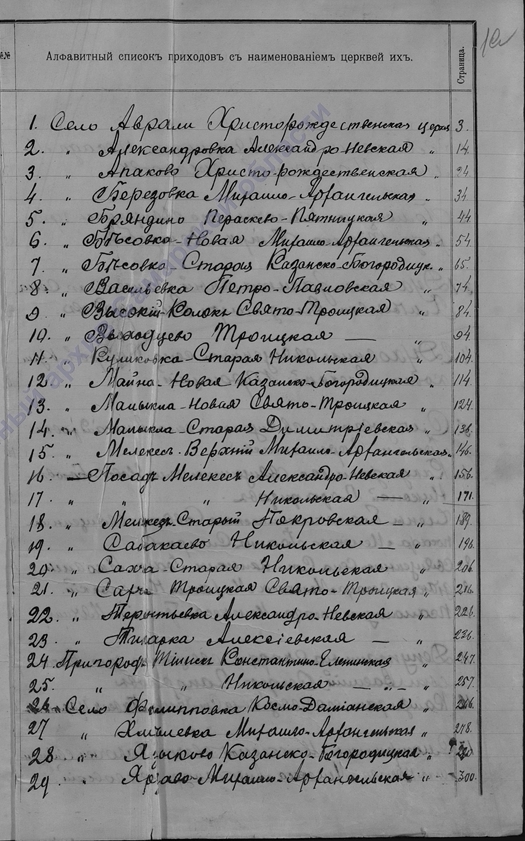 1а
№№ Алфавитный списокъ приходовъ съ наименованіемъ церквей ихъ. Страница.
1. Село Аврали Христорождественская церковь 3.
2. " Александровка Александро-Невская " 14.
3. " Апаково Христо-рождественская 24
4. " Березовка Михаило-Архангельская 34
5. " Бряндино Параскево-Пятницкая " 44
6. " Бѣсовка-Новая Михаило-Архангельская 54
7. " Бѣсовка Старая Казанско-Богородицк. " 65.
8. " Васильевка Петро-Павловская " 74
9. " Высокій-Колокъ Свято-Троицкая " 84
10. " Троицкая — " 94
11. " Куликовка-Старая Никольская " 104.
12. " Майна-Новая Казанско-Богородицкая " 114.
13. " Малыкла-Новая Свято-Троицкая " 124.
14. " Малыкла-Старая Димитріевская "
15. " Мелекесъ-Верхній Михаило-Архангельская 146.
16. — Посадъ Мелекесъ Александро-Невская " 156.
17. " " " Никольская — " 171.
18. " Старый Покровская — " 189.
19. " Сабакаево Никольская — " 196.
20. " Сахча-Старая Никольская " 206
21. " Троицкая Свято-Троицкая " 216.
22. " Терентьевка Александро-Невская " 226.
23. " Алексіевская — " 236.
24. Пригородъ Тіинскъ Константино-Еленинская " 247.
25. " " Никольская — " — " 257.
26. Село Филипповка Космо-Даміанская "
27. " Хмелевка Михаило-Архангельская " 278.
28. " Языково Казанско-Богородицкая "
29. " Михаило-Архангельская " 300.